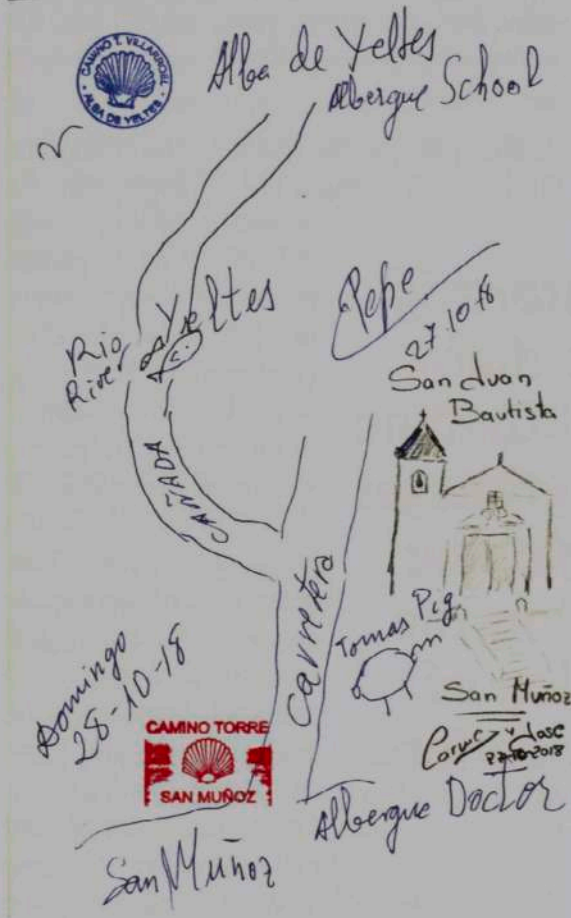 CAMINO T. VILLARROEL
ALBA DE YELTES
Alba de Yeltes
Albergue School
Rio Yeltes
River
Pepe
27-10-18
San Juan
Bautista
CAÑADA
Carretera
Tomas Pig
San Muñoz
y Jose
27-10-2018
Domingo
28-10-18
CAMINO TORRE
SAN MUÑOZ
Albergue Doctor
San Muñoz